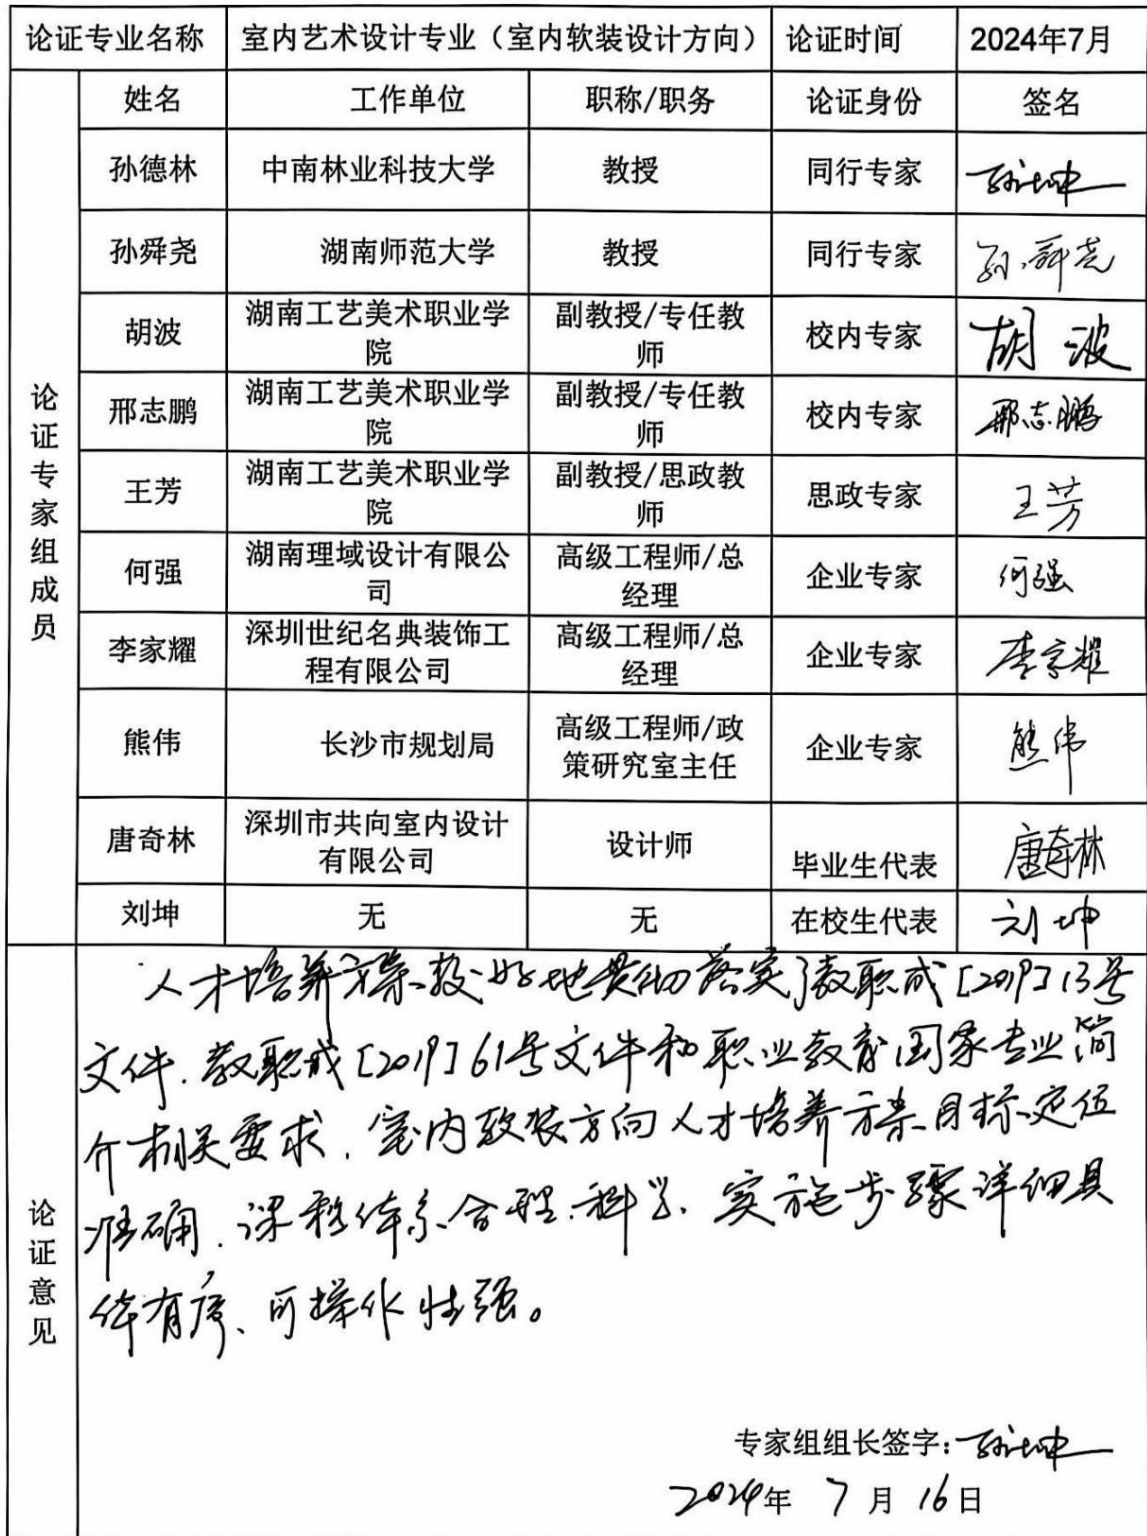 论证专业名称 室内艺术设计专业（室内软装设计方向） 论证时间 2024年7月
论证专家组成员
姓名 工作单位 职称/职务 论证身份 签名
孙德林 中南林业科技大学 教授 同行专家
孙舜尧 湖南师范大学 教授 同行专家 孙舜尧
胡波 湖南工艺美术职业学院 副教授/专任教师 校内专家 胡波
邢志鹏 湖南工艺美术职业学院 副教授/专任教师 校内专家 邢志鹏
王芳 湖南工艺美术职业学院 副教授/思政教师 思政专家 王芳
何强 湖南理域设计有限公司 高级工程师/总经理 企业专家 何强
李家耀 深圳世纪名典装饰工程有限公司 高级工程师/总经理 企业专家 李家耀
熊伟 长沙市规划局 高级工程师/政策研究室主任 企业专家 熊伟
唐奇林 深圳市共向室内设计有限公司 设计师 毕业生代表 唐奇林
刘坤 无 无 在校生代表 刘坤
论证意见
人才培养方案较好地贯彻落实了教职成[2019]13号
文件、教职成[2019]61号文件和职业教育国家专业简
介相关要求，室内软装方向人才培养方案目标定位
准确，课程体系合理、科学，实施步骤详细具
体有序、可操作性强。
专家组组长签字：
2024年 7月 16日